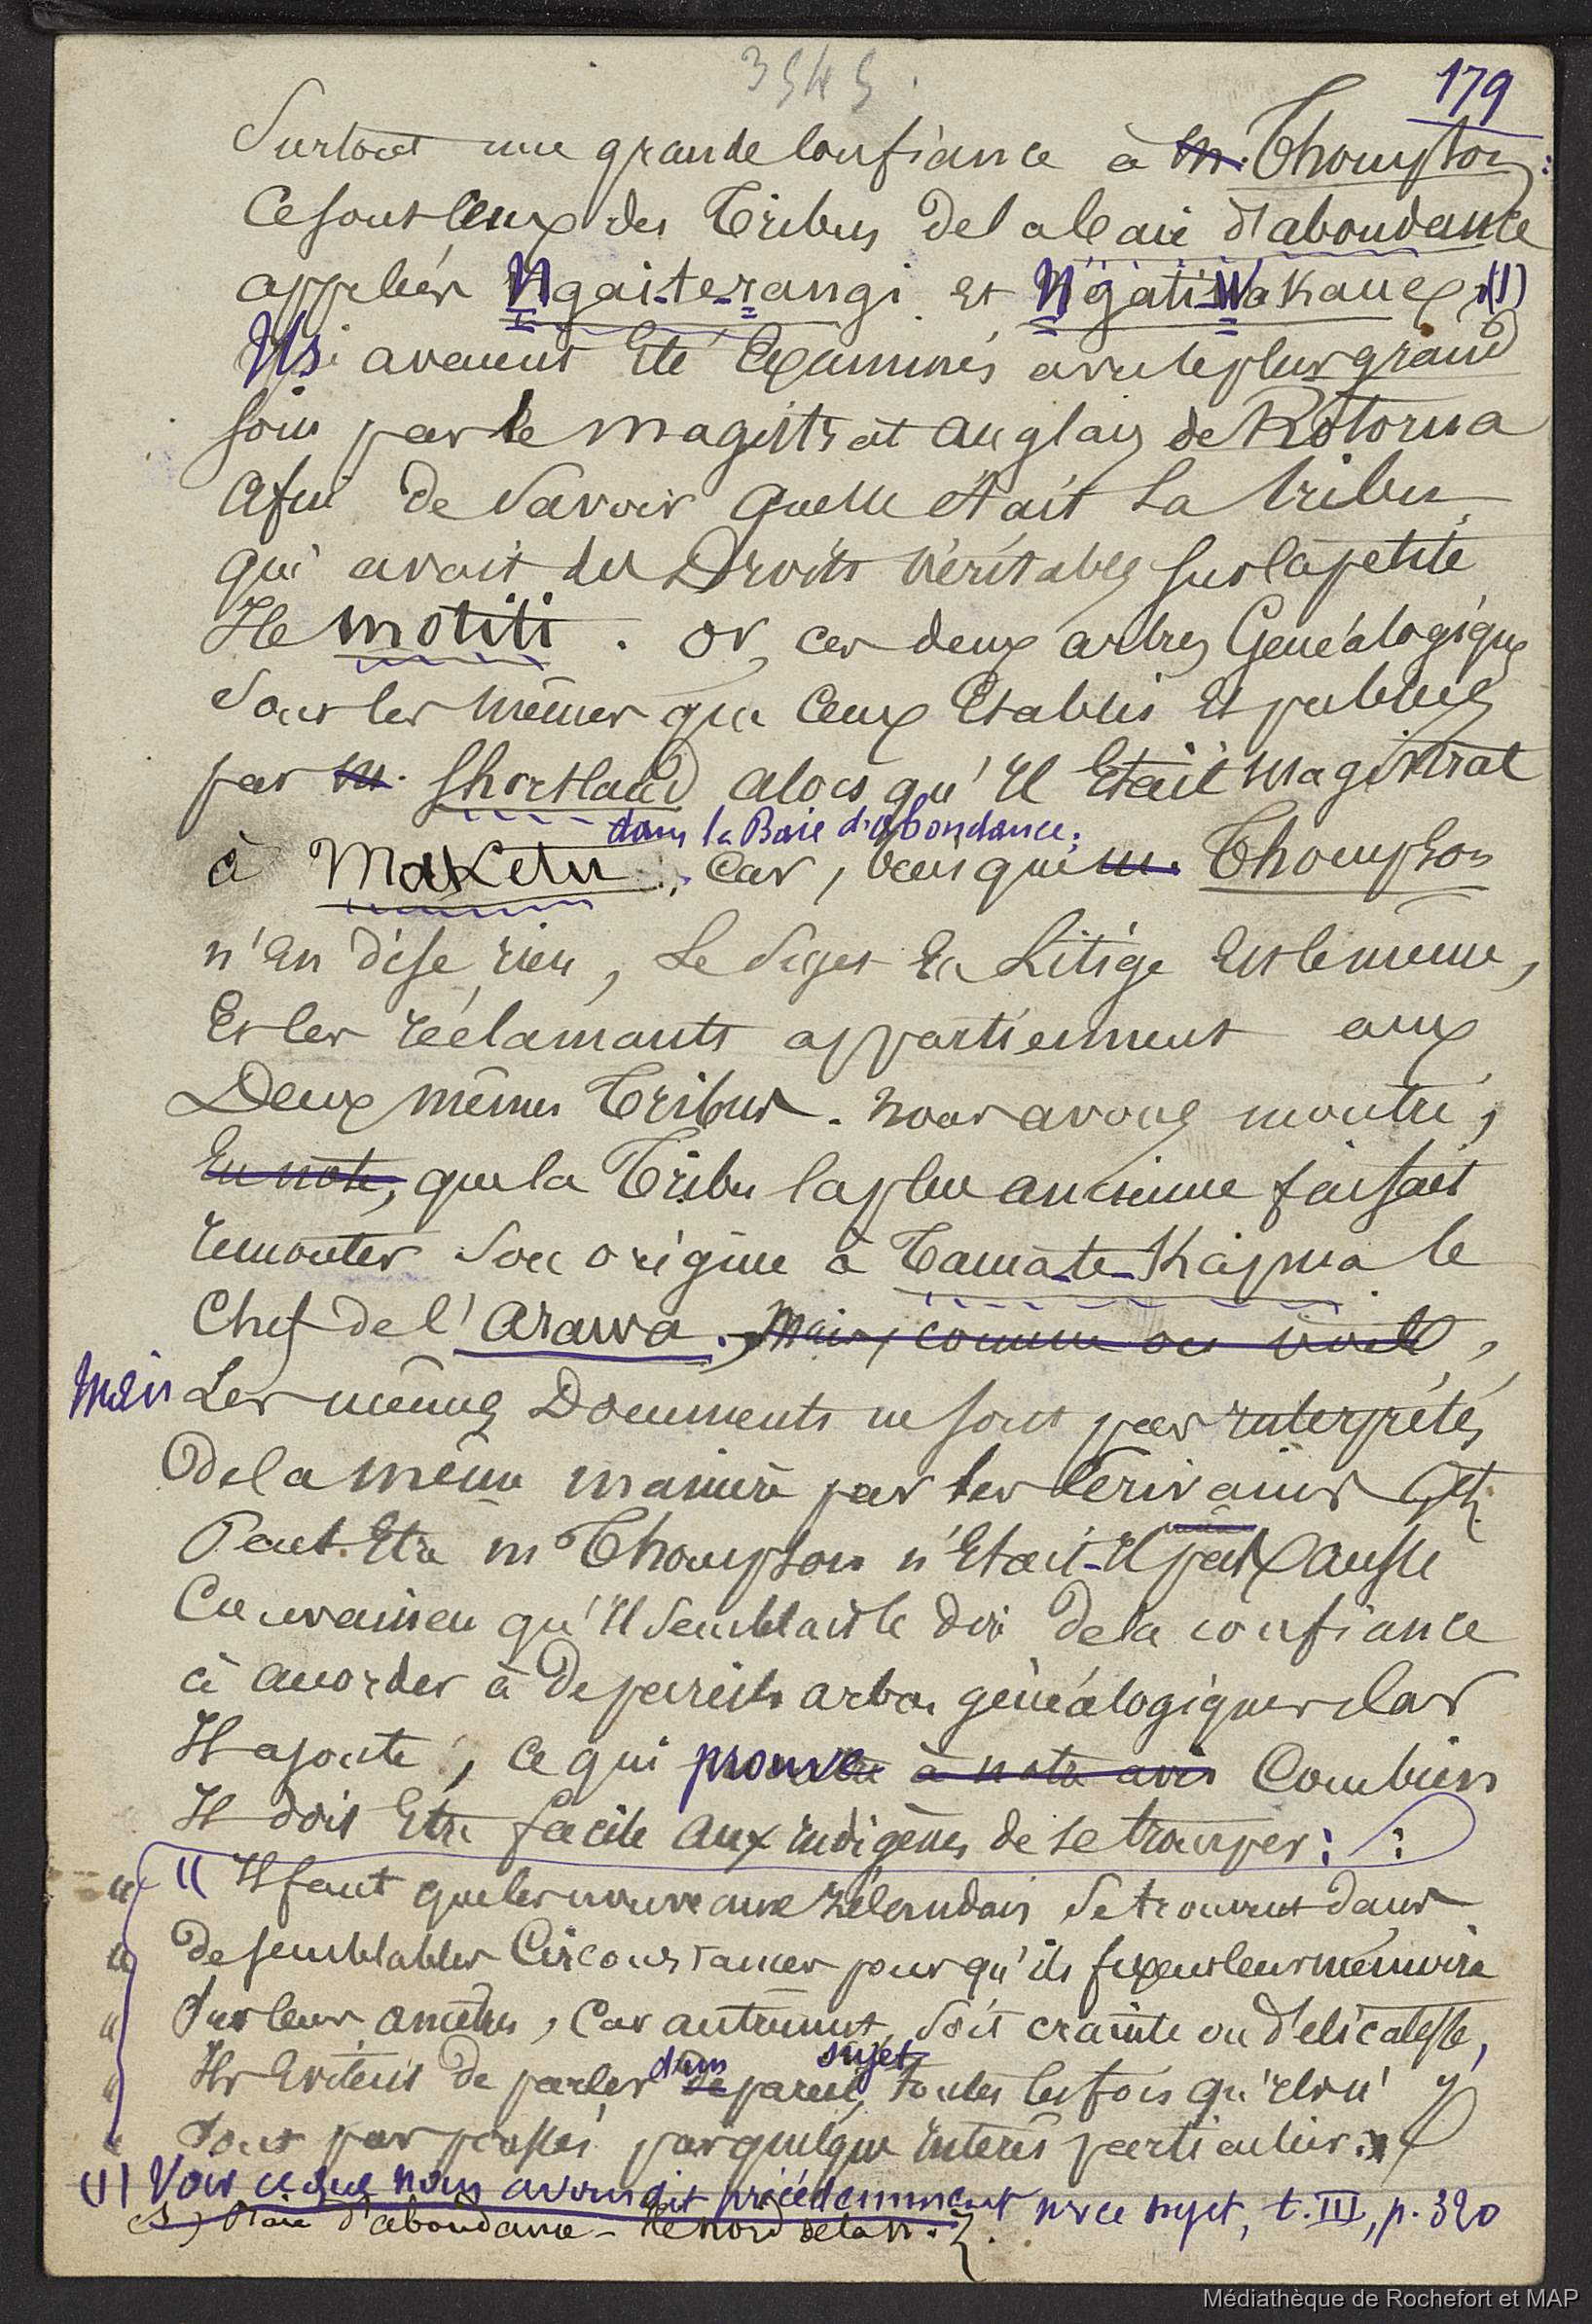 3545.
179
Surtout une grande confiance à M. Thompson:
Ce sont ceux des Tribus de la Baie d'abondance
appelées Ngai-te-rangi et Ngati-Wakaue, (1)
Ils avaient été examinés avec le plus grand
soin par le magistrat anglais de Rotorua
afin de savoir quelle était la tribu
qui avait des Droits véritables sur la petite
Ile motiti. or, ces deux arbres Généalogiques
sont les mêmes que ceux Etablis et publiés
par M. Shortland alors qu'il était magistrat
dans la Baie d'abondance;
à Maketu. Car, bien que M. Thompson
n'en dise rien, le sujet en Litige est le même,
Et les réclamants appartiennent aux
Deux mêmes Tribus. nous avons montré,
En note, que la Tribu la plus ancienne faisait
remonter son origine à Tama-te-Kapua le
Chef de l'Arawa. Mais, comme on voit,
Mais Les mêmes Documents ne sont pas interprétés
De la même manière par les Ecrivains Et
Peut-Etre M Thompson n'était-il pas aussi
Convaincu qu'il semblait le dire de la confiance
à accorder à de pareils arbres généalogiques car
Il ajoute, ce qui prouve à notre avis Combien
Il doit Etre facile aux indigènes de se tromper:
" Il faut que les nouveaux zélandais se trouvent dans
" de semblables Circonstances pour qu'ils fixent leur mémoire
" sur leurs ancêtres, Car autrement, soit crainte ou délicatesse,
dans sujet
" Ils évitent de parler de pareil, toutes les fois qu'ils n'y
" sont pas poussés par quelque intérêt particulier."
(1) Voir ce que nous avons dit précédemment sur ce sujet, t. III, p. 320
(1) Baie d'abondance - Ile nord de la N. Z.
Médiathèque de Rochefort et MAP